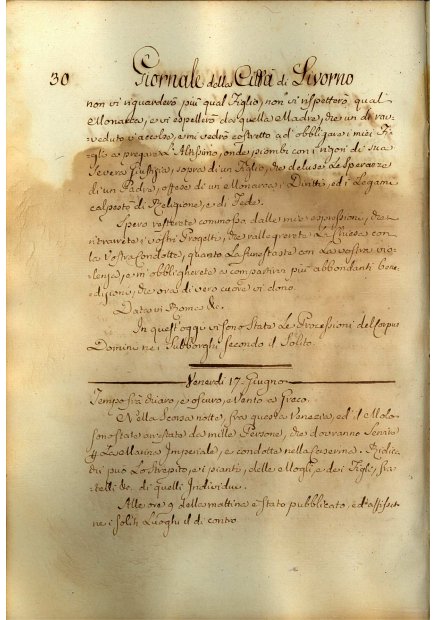 30 Giornale della Città di Livorno
non vi riguarderò più qual Figlio, non vi rispetterò qual
Monarca, e vi espellerò da quella Madre, che un dì rav-
veduto vi accolse, e mi vedrò costretto ad obbligare i miei Fi-
gli a pregare l'Altissimo, onde piombi con i rigori di sua
Severa Giustizia, sopra di un Figlio, che deluse le Speranze
di un Padre, offese di un Monarca i Diritti, ed i Legami
calpestò di Religione, e di Fede.
Spero resterete commosso dalle mie espressioni, che
ritrarrete i vostri Progetti, che rallegrerete la Chiesa con
la Vostra Condotta, quanto la funestaste con la vostra vio-
lenza, e m'obbligherete a compartirvi più abbondanti bene-
dizioni, che ora di vero cuore vi dono.
Data vi Roma &c.
In quest'oggi vi sono State le Processioni del Corpus
Domini nei Subborghi secondo il Solito.
Venerdì 17. Giugno
Tempo frà chiaro, e oscuro, e Vento a Greco.
Nella Scorsa notte, fra questa Venezia, ed il Molo
sono state arrestate da mille Persone, che dovranno Servire
la Marina Imperiale, e condotte nella Caserma. Ridica
chi può lo Strepito, e i pianti, delle Mogli, e dei Figli, fra-
telli &c. di quelli Individui.
Alle ore 9 della mattina è stato pubblicato, ed affisso
ne i soliti Luoghi il di contro